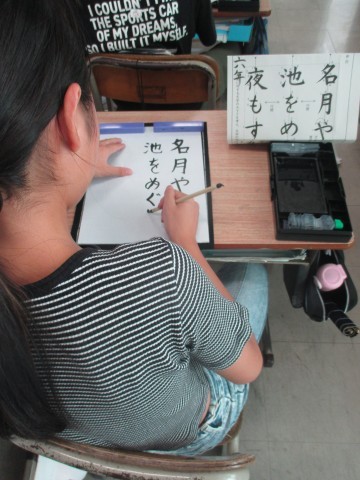 I COULDN'T F
THE SPORTS CAR
OF MY DREAMS,
SO I BUILT IT MYSELF
名月や
池をめ
夜もす
六年
名月や
池をめぐ